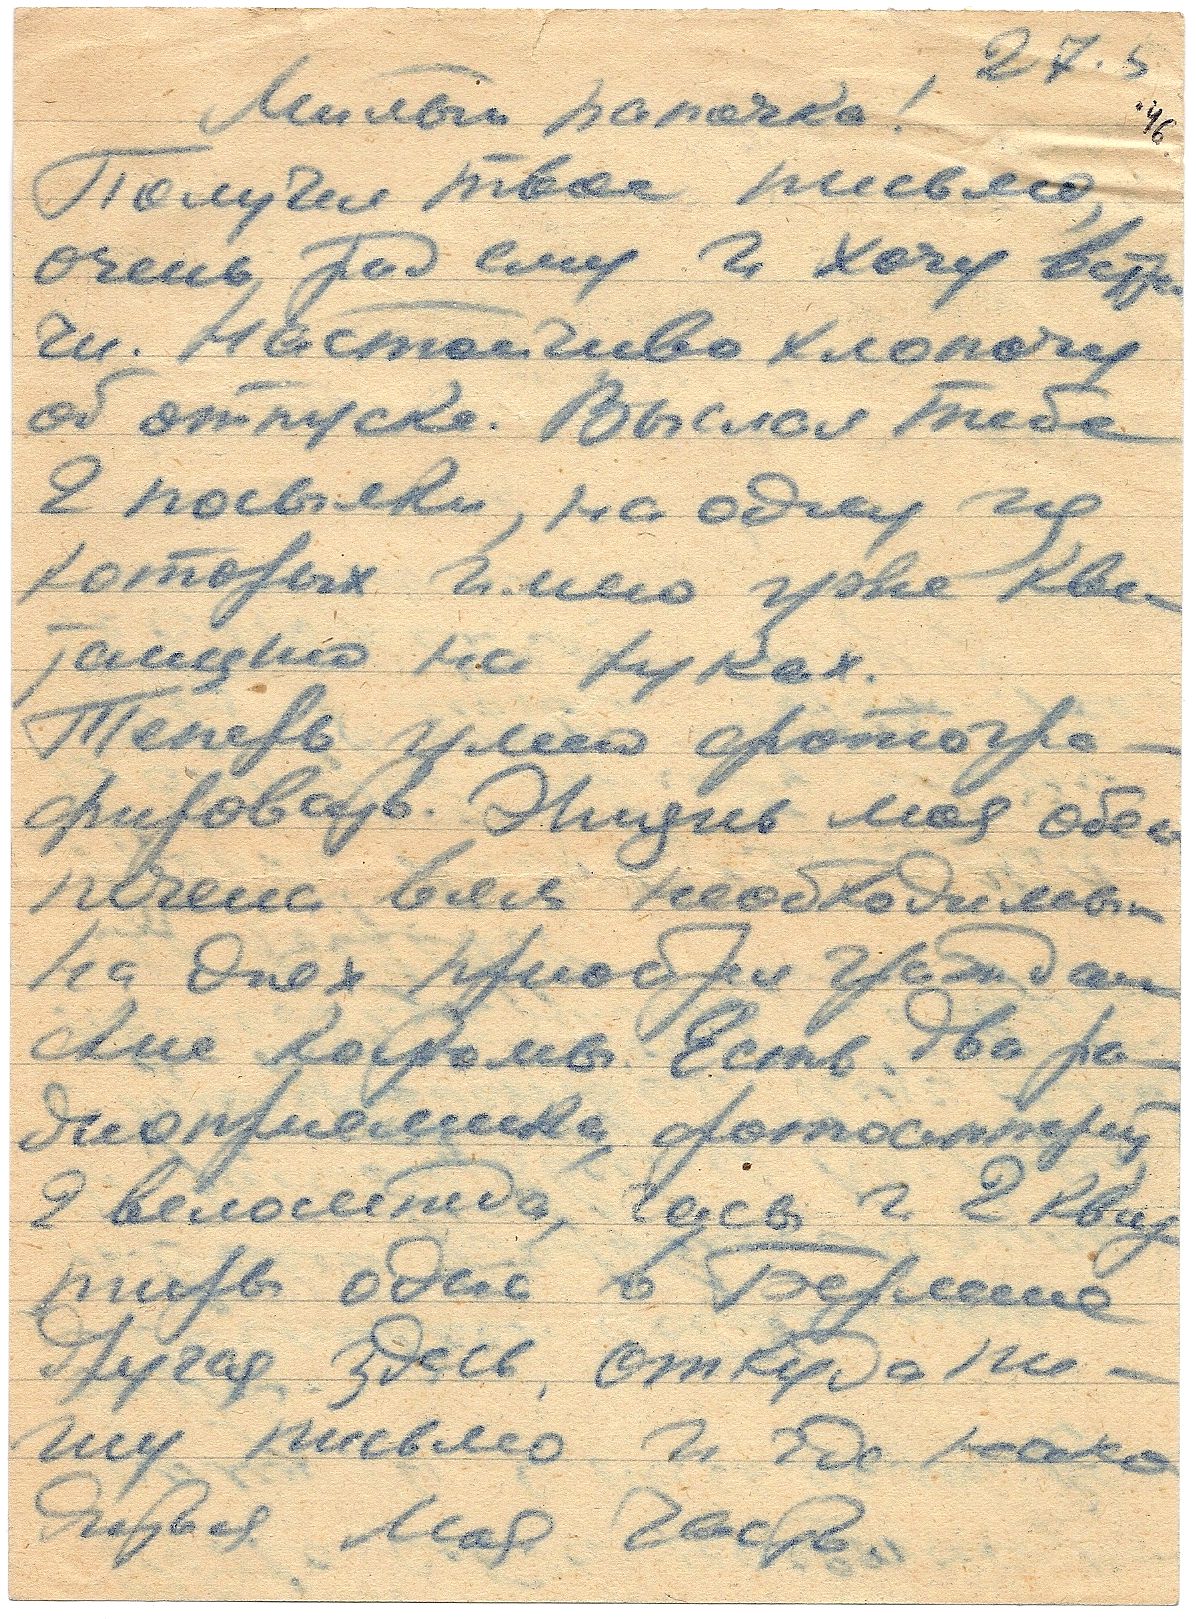 27.5
"46.
Милый папочка!
Получил твое письмо,
очень рад ему и хочу встре-
чи. Настойчиво хлопочу
об отпуске. Выслал тебе
2 посылки, на одну из
которых имею уже кви-
танцию на руках.
Теперь умею фотогра-
фировать. Жизнь моя обес
печена всем необходимым
На днях приобрел граждан
ские костюмы. Есть два ра-
диоприемника, фотоаппарат,
2 велосипеда, часы и 2 квар
тиры одна в Берлине
Другая здесь, откуда пи-
шу письмо и где нахо
дится моя часть.